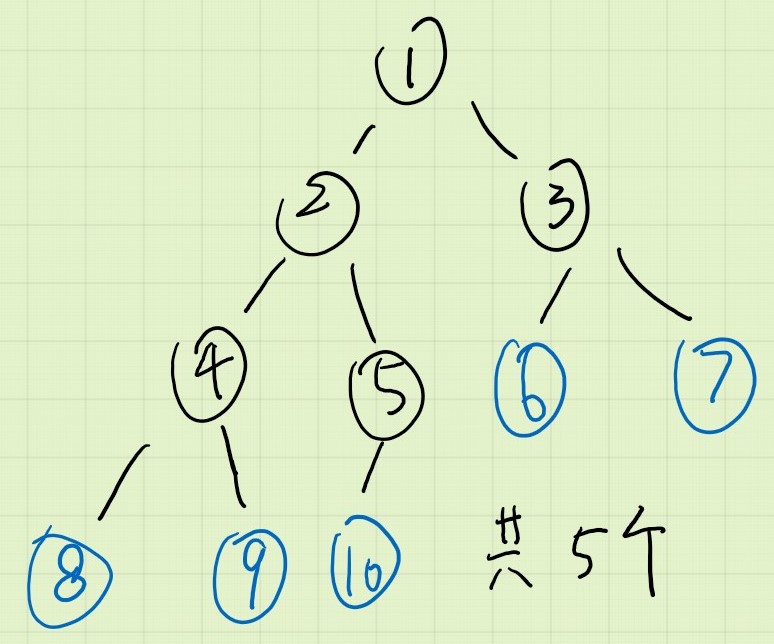 1
2 3
4 5 6 7
8 9 10 共 5个